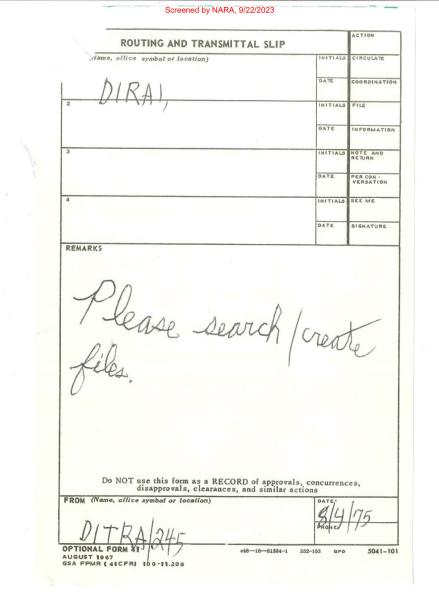 Screened by NARA, 9/22/2023
ROUTING AND TRANSMITTAL SLIP
ACTION
(Name, office symbol or location)
INITIALS
CIRCULATE
DIRAI,
DATE
COORDINATION
2
INITIALS
FILE
DATE
INFORMATION
3
INITIALS
NOTE AND
RETURN
DATE
PER CON -
VERSATION
4
INITIALS
SEE ME
DATE
SIGNATURE
REMARKS
Please search/create
files.
Do NOT use this form as a RECORD of approvals, concurrences,
disapprovals, clearances, and similar actions
FROM (Name, office symbol or location)
DATE
8/4/75
PHONE
DITRA/245
OPTIONAL FORM 41
AUGUST 1967
GSA FPMR (41CFR) 100-11.206
c48—16—81594-1 552-103 GPO
5041-101